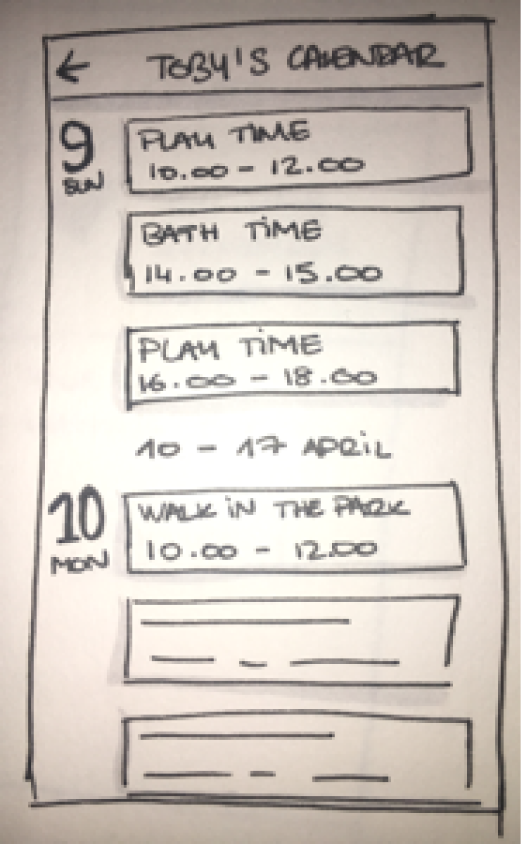 ← TOBY'S CALENDAR
9
SUN
PLAY TIME
10.00 - 12.00
BATH TIME
14.00 - 15.00
PLAY TIME
16.00 - 18.00
10 - 17 APRIL
10
MON
WALK IN THE PARK
10.00 - 12.00